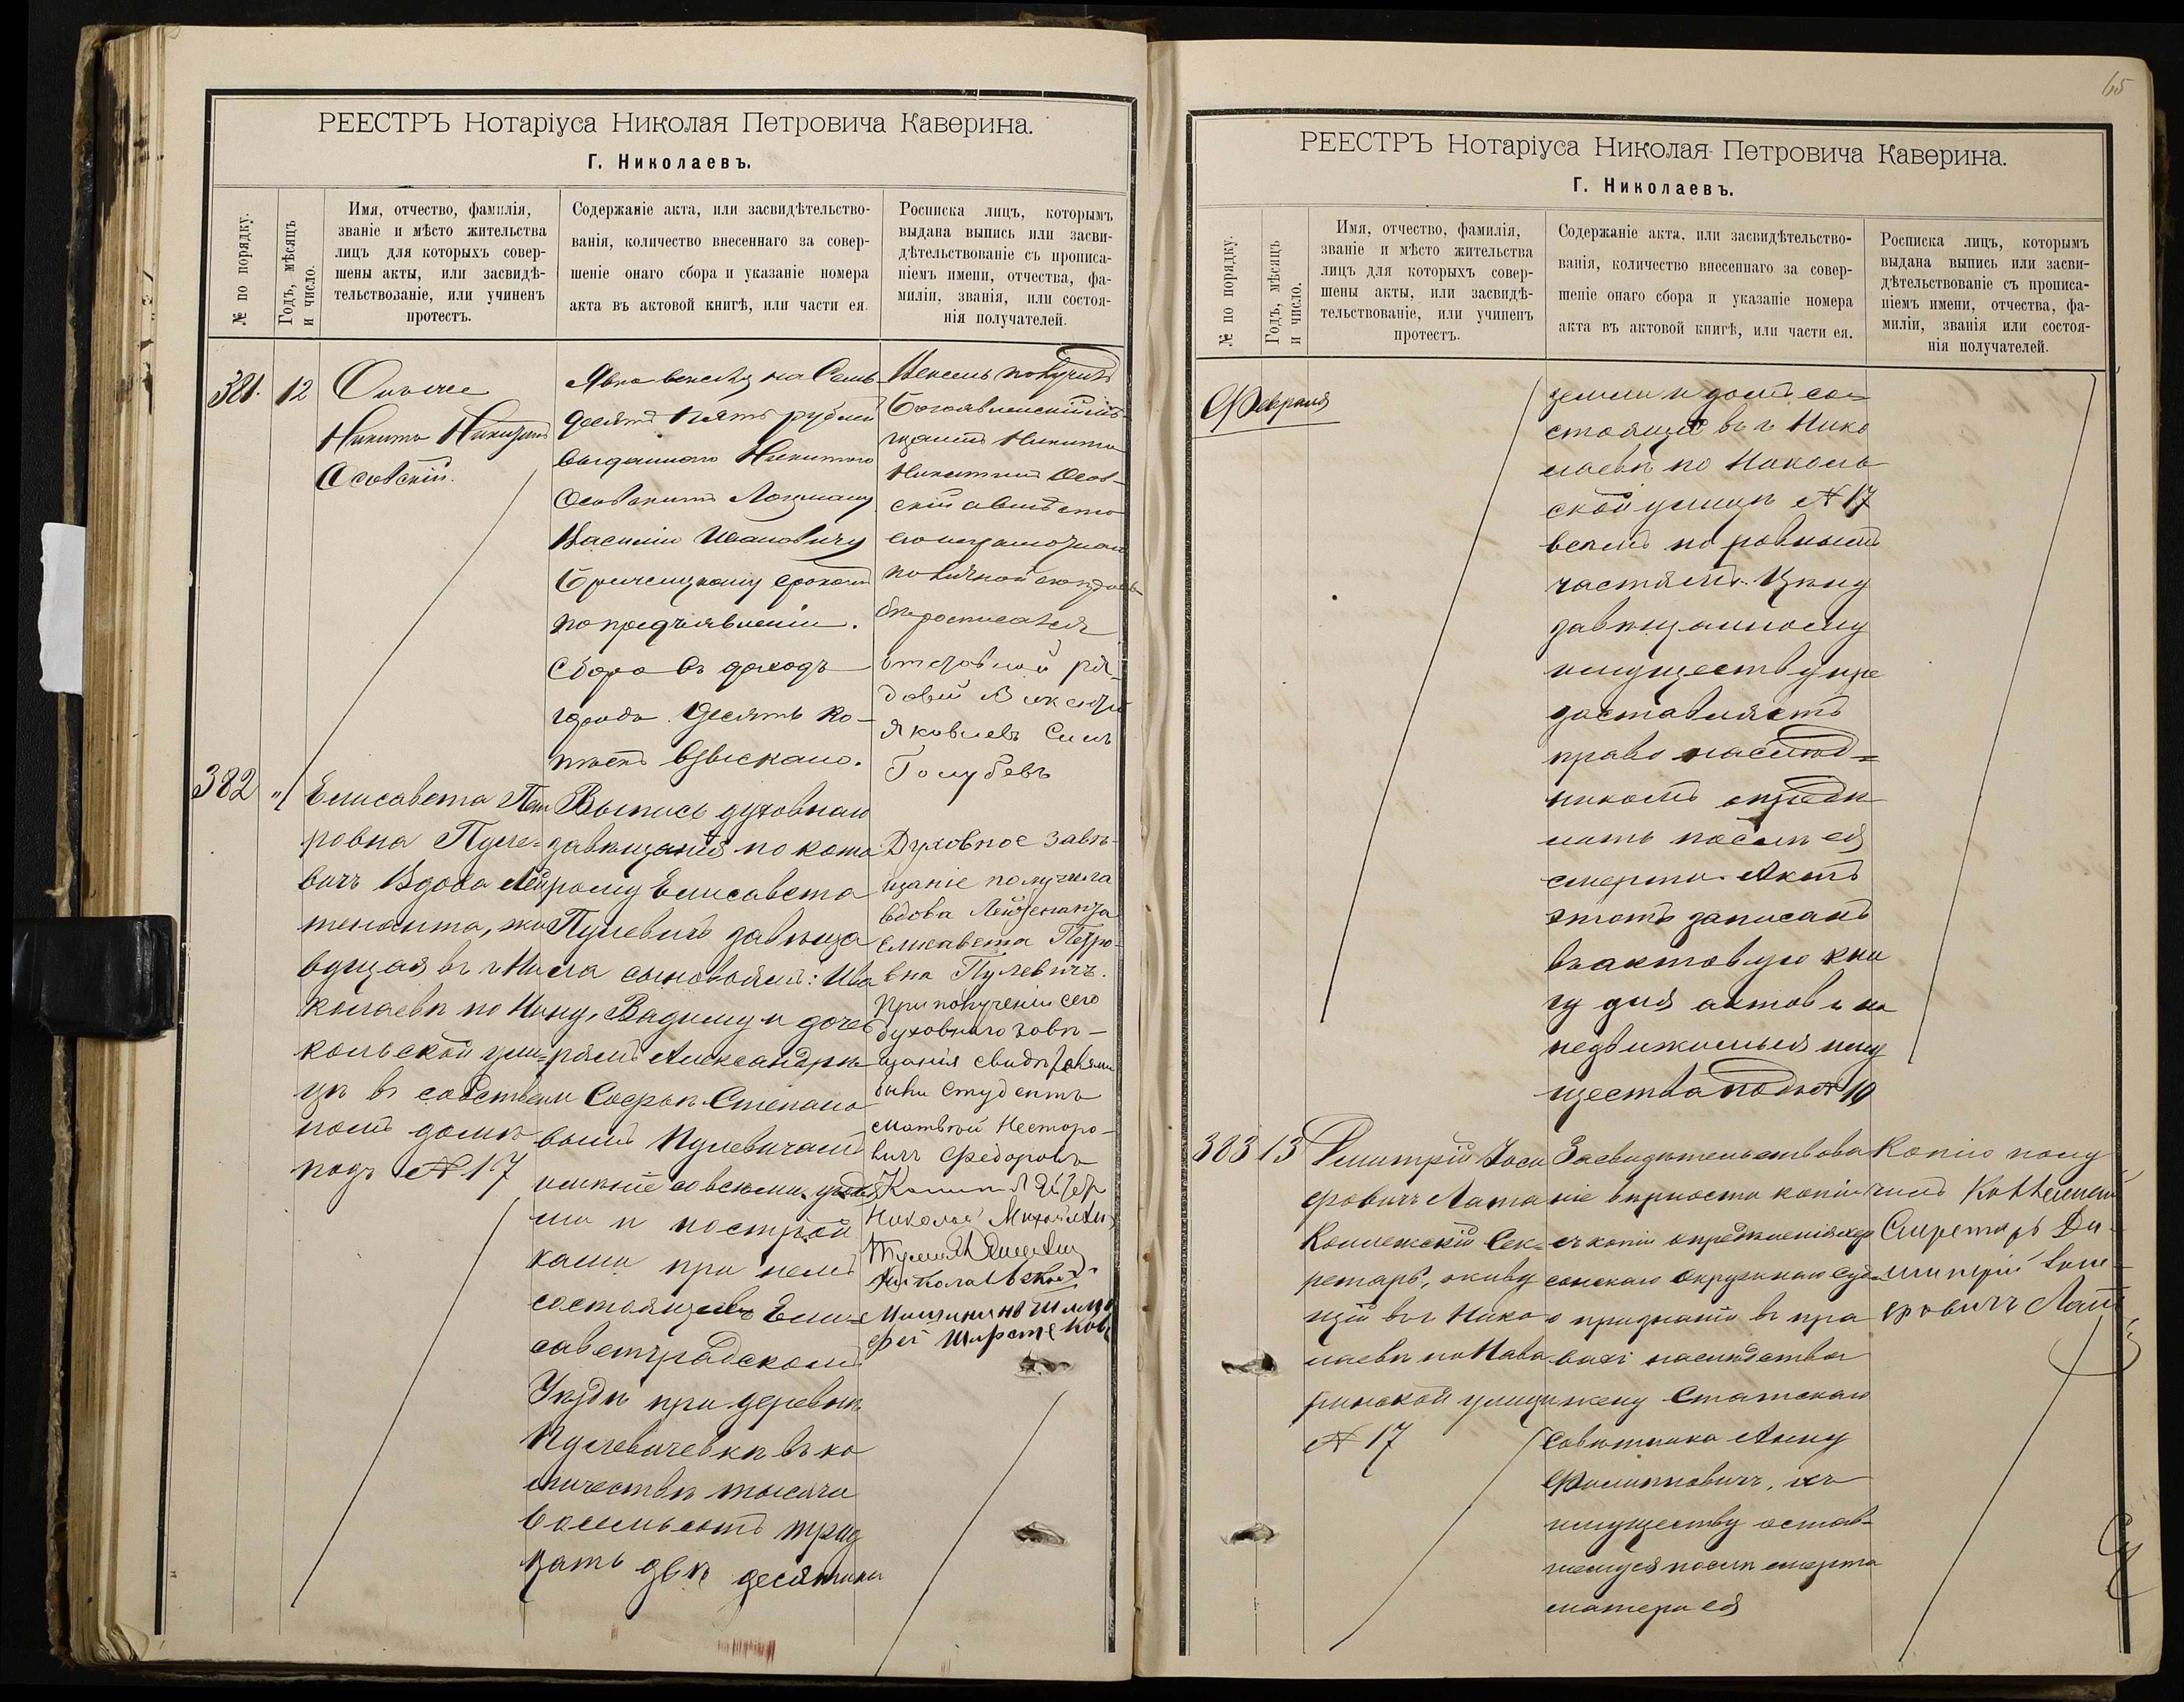 РЕЕСТРЪ Нотаріуса Николая Петровича Каверина.
Г. Николаевъ.
№ по порядку.
Годъ, мѣсяцъ
и число.
Имя, отчество, фамилія,
званіе и мѣсто жительства
лицъ для которыхъ совер-
шены акты, или засвидѣ-
тельствованіе, или учиненъ
протестъ.
Содержаніе акта, или засвидѣтельство-
ванія, количество внесеннаго за совер-
шеніе онаго сбора и указаніе номера
акта въ актовой книгѣ, или части ея.
Росписка лицъ, которымъ
выдана выпись или засви-
дѣтельствованіе съ прописа-
ніемъ имени, отчества, фа-
миліи, званія, или состоя-
нія получателей.
381.
12
Никита Никитинъ
Осовскій.
Явка векселя на Семь-
десятъ пять рублей
выданнаго Никитою
Осовскимъ Лоцману
Василію Ивановичу
срокомъ
по предъявленіи.
Сбора въ доходъ
города десять ко-
пѣекъ взыскано.
Вексель получилъ
Никита
Никитинъ Осов-
скій а вмѣсто
его неграмотнаго
по личной его прось-
бѣ росписался
отставной ря-
довой
Яковлевъ Сынъ
Голубевъ
382
"
Елисавета Пет
ровна Пуле-
вичъ Вдова Лей
тенанта, жи
вущая въ г Ни
колаевѣ по Ни
кольской ули-
цѣ въ собствен
номъ домѣ
подъ № 17
Выпись духовнаго
завѣщанія по кото
рому Елисавета
Пулевичъ завѣща
ла сыновьямъ: Ива
ну, Вадиму и доче
рямъ Александрѣ
и Софьѣ Степано
вымъ Пулевичамъ
имѣніе со всѣми
ми и построй
ками при немъ
состоящее въ Ели-
саветградскомъ
Уѣздѣ при деревнѣ
Пулевичевкѣ въ ко
личествѣ тысяча
восемьсотъ трид
цать двѣ десятины
Духовное завѣ-
щаніе получила
вдова Лейтенанта
Елисавета Петро-
вна Пулевичъ.
При полученіи сего
духовнаго завѣ-
щанія свидѣтелями
были Студентъ
Матвѣй Несторо-
вичъ Федоровъ
Николай
Мѣщанинъ
65
РЕЕСТРЪ Нотаріуса Николая Петровича Каверина.
Г. Николаевъ.
№ по порядку.
Годъ, мѣсяцъ
и число.
Имя, отчество, фамилія,
званіе и мѣсто жительства
лицъ для которыхъ совер-
шены акты, или засвидѣ-
тельствованіе, или учиненъ
протестъ.
Содержаніе акта, или засвидѣтельство-
ванія, количество внесеннаго за совер-
шеніе онаго сбора и указаніе номера
акта въ актовой книгѣ, или части ея.
Росписка лицъ, которымъ
выдана выпись или засви-
дѣтельствованіе съ прописа-
ніемъ имени, отчества, фа-
миліи, званія или состоя-
нія получателей.
Февраля
земли и домъ со-
стоящій въ г Нико
лаевѣ по Николь
ской улицѣ № 17
всѣмъ по равнымъ
частямъ. Цѣну
завѣщанному
имуществу пре
доставляетъ
право наслѣд=
никамъ опредѣ
лить послѣ ея
смерти. Актъ
этотъ записанъ
въ актовую кни
гу для актовъ на
недвижимыя иму
щества подъ № 10
383
13
Дмитрій Іоси
фовичъ Лата
Коллежскій Сек-
ретарь, живу
щій въ г Нико
лаевѣ по Нава
ринской улицѣ
№ 17
Засвидѣтельствова
ніе вѣрности копіи
съ копіи опредѣленія Хер
сонскаго Окружнаго Суда
о признаніи въ пра
вахъ наслѣдства
жену Статскаго
Совѣтника Анну
Филипповичъ, къ
имуществу остав-
шемуся послѣ смерти
матери ея
Копію полу
чилъ Коллежскій
Секретарь Ди-
митрій Іоси-
фовичъ Лата